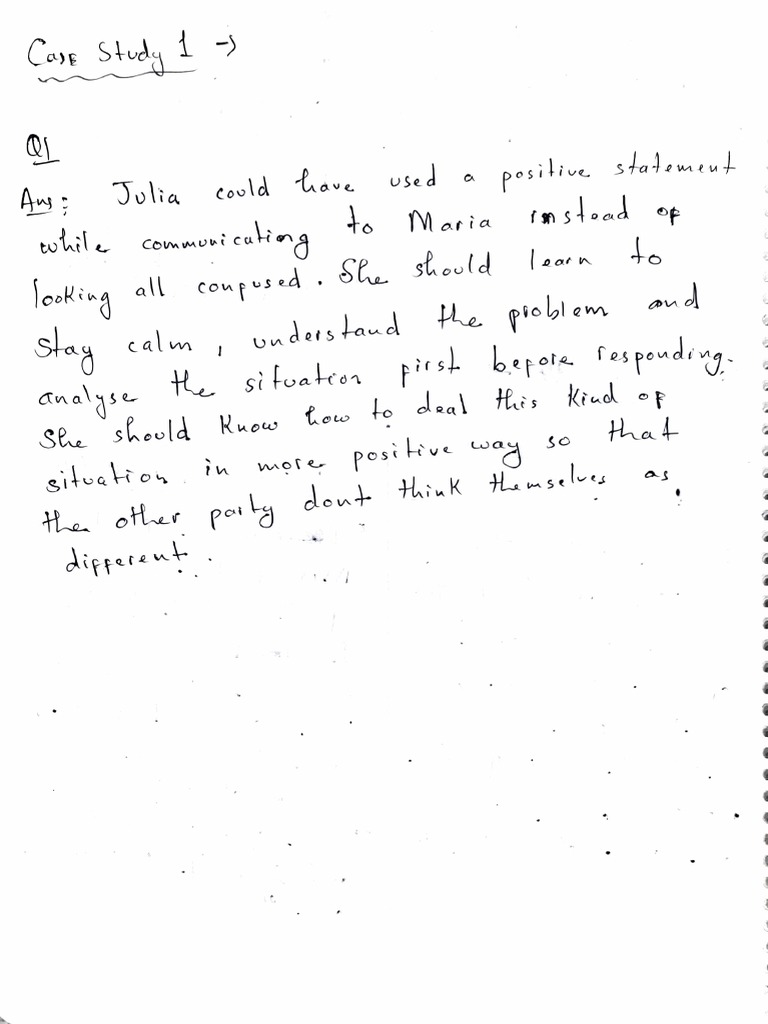 Case Study 1 →
Q1
Ans: Julia could have used a positive statement
while communicating to Maria instead of
looking all confused. She should learn to
stay calm, understand the problem and
analyse the situation first before responding.
She should know how to deal this kind of
situation in more positive way so that
the other party dont think themselves as
different.